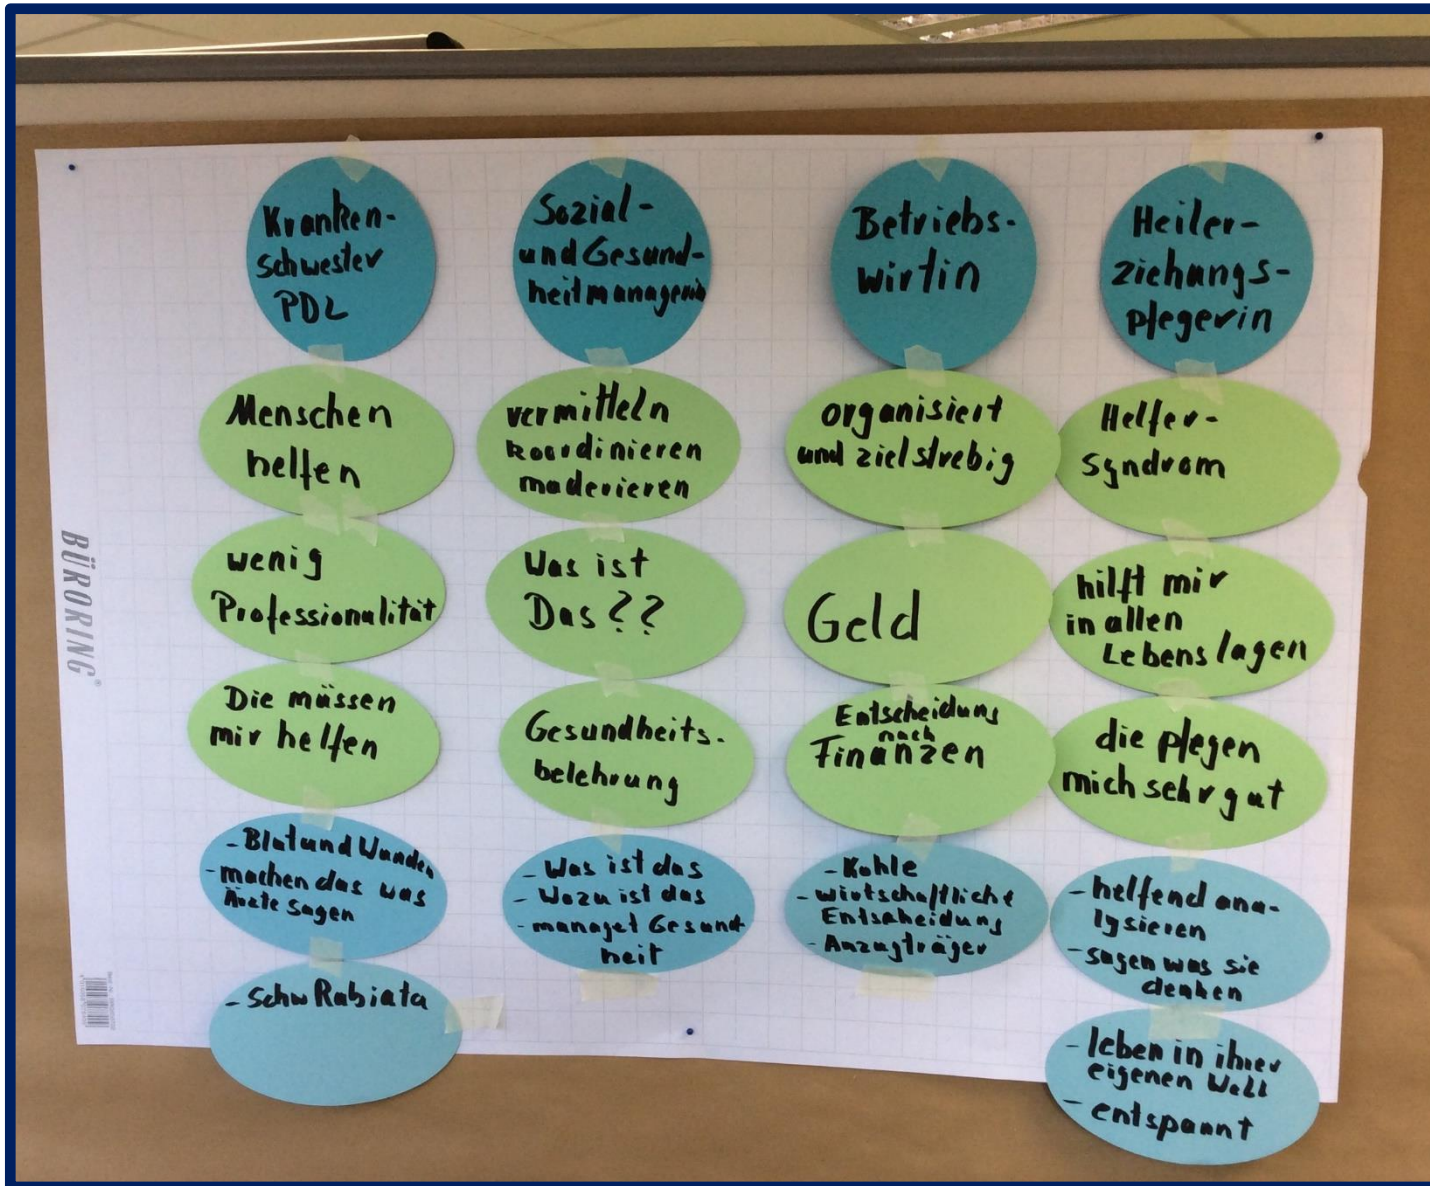 Kranken-
schwester
PDL
Menschen
helfen
wenig
Professionalität
Die müssen
mir helfen
- Blut und Wunden
- machen das was
Ärzte sagen
- Schw Rabiata
Sozial-
und Gesund-
heitmanagerin
vermitteln
koordinieren
moderieren
Was ist
Das??
Gesundheits-
belehrung
- Was ist das
- Wozu ist das
- managet Gesund
heit
Betriebs-
wirtin
organisiert
und zielstrebig
Geld
Entscheidung
nach
Finanzen
- Kohle
- wirtschaftliche
Entscheidung
- Anzugträger
Heiler-
ziehungs-
pflegerin
Helfer-
syndrom
hilft mir
in allen
Lebenslagen
die pflegen
mich sehr gut
- helfend ana-
lysieren
- sagen was sie
denken
- leben in ihrer
eigenen Welt
- entspannt
BÜRORING®